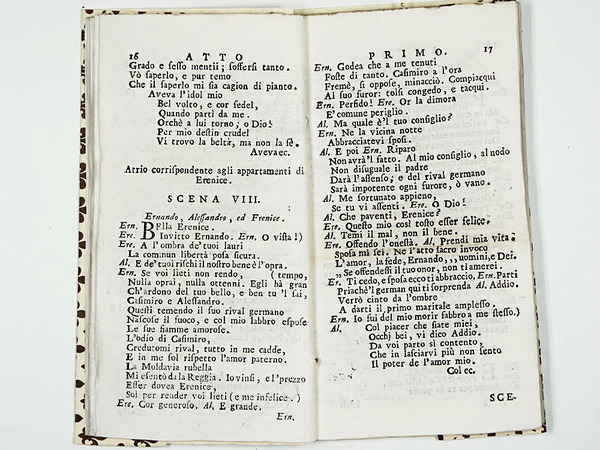 16 ATTO
Grado e sesso mentii; soffersi tanto.
Vò saperlo, e pur temo
Che il saperlo mi sia cagion di pianto.
Aveva l'idol mio
Bel volto, e cor fedel,
Quando partì da me.
Orchè a lui torno; o Dio!
Per mio destin crudel
Vi trovo la beltà, ma non la fè.
Avevaec.
Atrio corrispondente agli appartamenti di
Erenice.
SCENA VIII.
Ernando, Alessandro, ed Erenice.
Ern. BElla Erenice.
Ere. Invitto Ernando. Ern. O vista!)
Ere. A l'ombra de' tuoi lauri
La comun libertà posa sicura.
Al. E de' tuoi rischi il nostro bene è l'opra.
Ern. Se voi lieti non rendo, (tempo,
Nulla oprai, nulla ottenni. Egli hà gran
Ch'ardono del tuo bello, e ben tu 'l sai,
Casimiro e Alessandro.
Questi temendo il suo rival germano
Nascose il fuoco, e col mio labbro espose
Le sue fiamme amorose.
L'odio di Casimiro,
Credutomi rival, tutto in me cadde,
E in me sol rispetto l'amor paterno.
La Moldavia rubella
Mi esentò da la Reggia. Io vinsi, e l'prezzo
Esser dovea Erenice,
Sol per render voi lieti (e me infelice.)
Ere. Cor generoso. Al. E grande.
Ern.
PRIMO. 17
Ern. Godea che a me tenuti
Foste di tanto. Casimiro a l'ora
Fremè, si oppose, minacciò. Compiacqui
Al suo furor: tolsi congedo, e tacqui.
Ern. Perfido! Ere. Or la dimora
E' comune periglio.
Al. Ma quale è'l tuo consiglio?
Ern. Ne la vicina notte
Abbracciatevi sposi.
Al. E poi Ern. Riparo
Non avrà'l fatto. Al mio consiglio, al nodo
Non disuguale il padre
Darà l'assenso; e del rival germano
Sarà impotente ogni furore, ò vano.
Al. Me fortunato appieno,
Se tu vi assenti. Ere. O Dio!
Al. Che paventi, Erenice?
Ere. Questo mio così tosto esser felice.
Al. Temi il mal, non il bene.
Ere. Offendo l'onestà. Al. Prendi mia vita:
Sposa mi sei. Ne l'atto sacro invoco
L'amor, la fede, Ernando, ,,uomini,e Dei.
,, Se offendessi il tuo onor, non ti amerei.
Er. Ti cedo, e sposa ecco ti abbraccio. Ern. Parti
Priachè'l german qui ti sorprenda Al. Addio.
Verrò cinto da l'ombre
A darti il primo maritale amplesso.
Ern. Io fui del mio morir fabbro a me stesso.)
Al. Col piacer che siate miei,
Occhj bei, vi dico Addio.
Da voi parto sì contento,
Che in lasciarvi più non sento
Il poter de l'amor mio.
Col ec.
SCE-